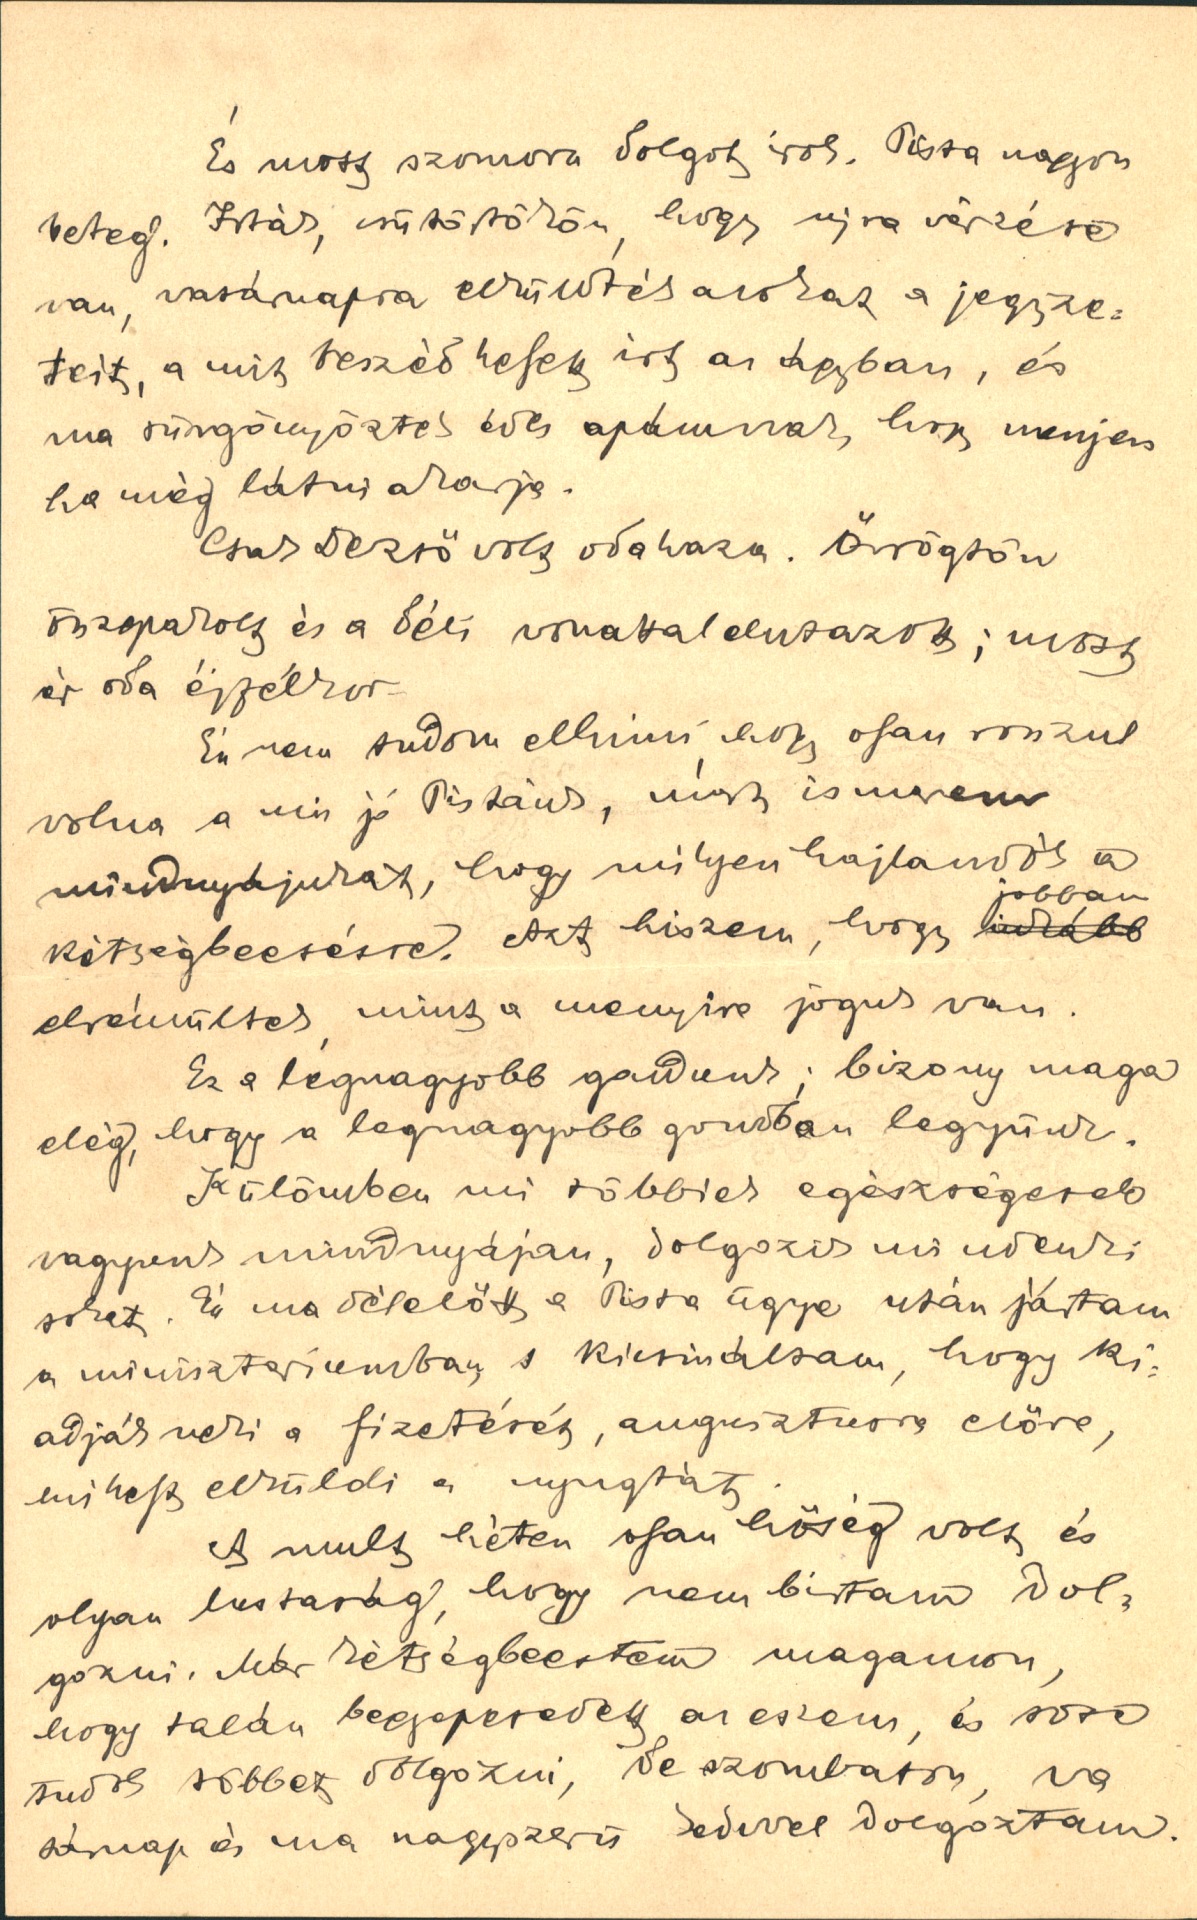 És most szomorú dolgot írok. Pista nagyon
beteg. Irták, csütörtökön, hogy ujra vérzése
van, vasárnapra elküldték azokat a jegyze=
teit, a mit beszéd helyett írt az ágyban, és
ma sürgönyöztek édes apámnak, hogy menjen
ha még látni akarja.
Csak Dezső volt odahaza. Ő rögtön
összepakolt és a déli vonattal elutazott; most
ér oda éjfélkor.
Én nem tudom elhinni, hogy olyan rosszul
volna a mi jó Pistánk, mert ismerem
mindnyájukat, hogy milyen hajlandók a
kétségbeesésre. Azt hiszem, hogy jobban
elrémültek, mint a menyire joguk van.
Ez a legnagyobb gondunk; bizony maga
elég, hogy a legnagyobb gondban legyünk.
Külömben mi többiek egészségesek
vagyunk mindnyájan, dolgozik mindenki
sokat. Én ma délelőtt a Pista ügye után jártam
a miniszteriumban, s kicsináltam, hogy ki=
adják neki a fizetését, augusztusra előre,
mihelyt elküldi a nyugtát.
A mult héten olyan hőség volt, és
olyan lustaság, hogy nem birtam dol=
gozni. Már kétségbeestem magamon,
hogy talán begyepesedett az eszem, és sose
tudok többet dolgozni, de szombaton, va
sárnap és ma nagyszerű kedvvel dolgoztam.